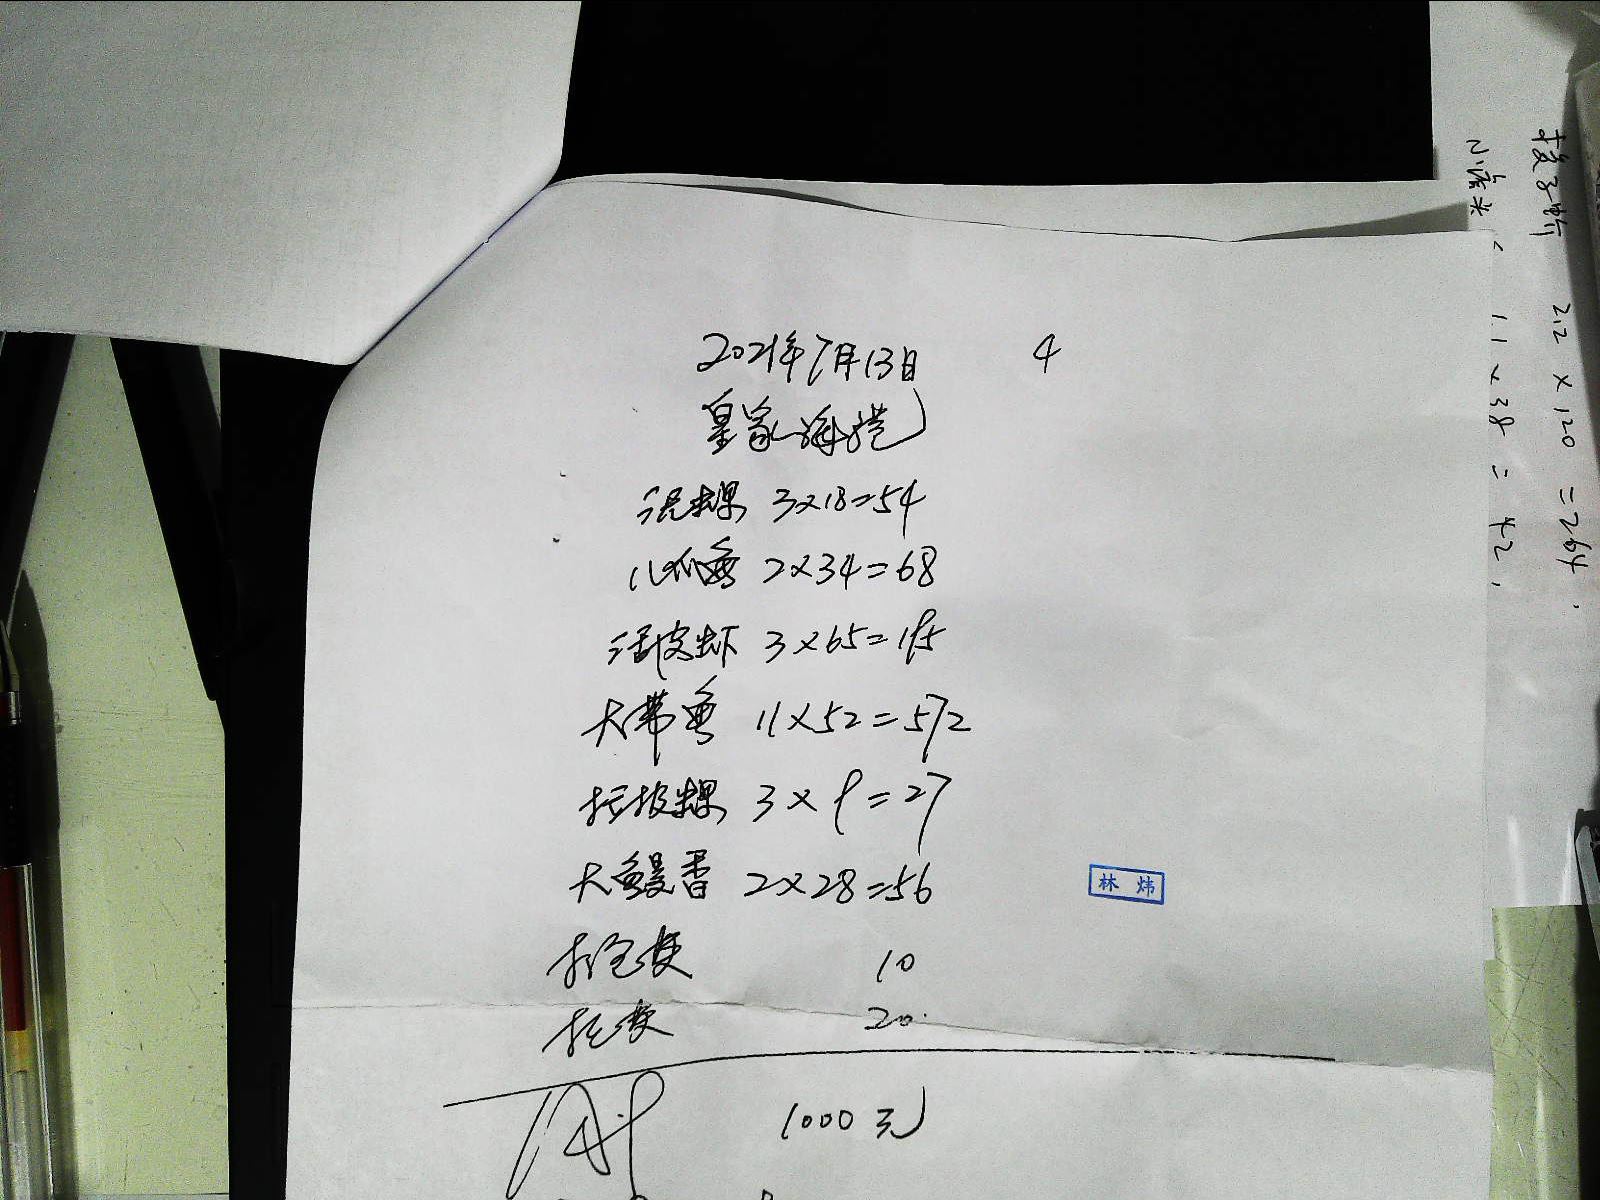 2021年7月13日 4
皇家海港
泥螺 3×18=54
八爪鱼 2×34=68
活皮虾 3×65=195
大带鱼 11×52=572
3×9=27
大鳗香 2×28=56
林炜
10
20
1000元
梭子蟹 2.2×120=264
1.1×38=42